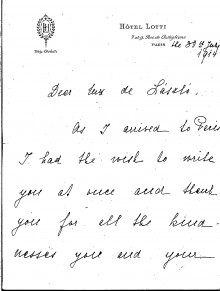 HÔTEL LOTTI
7 et 9, Rue de Castiglione
PARIS
the 30th July
1914
Dear Mrs de László.
As I arrived to Paris
I had the wish to write
you at once and thank
you for all the kind-
nesses you and your